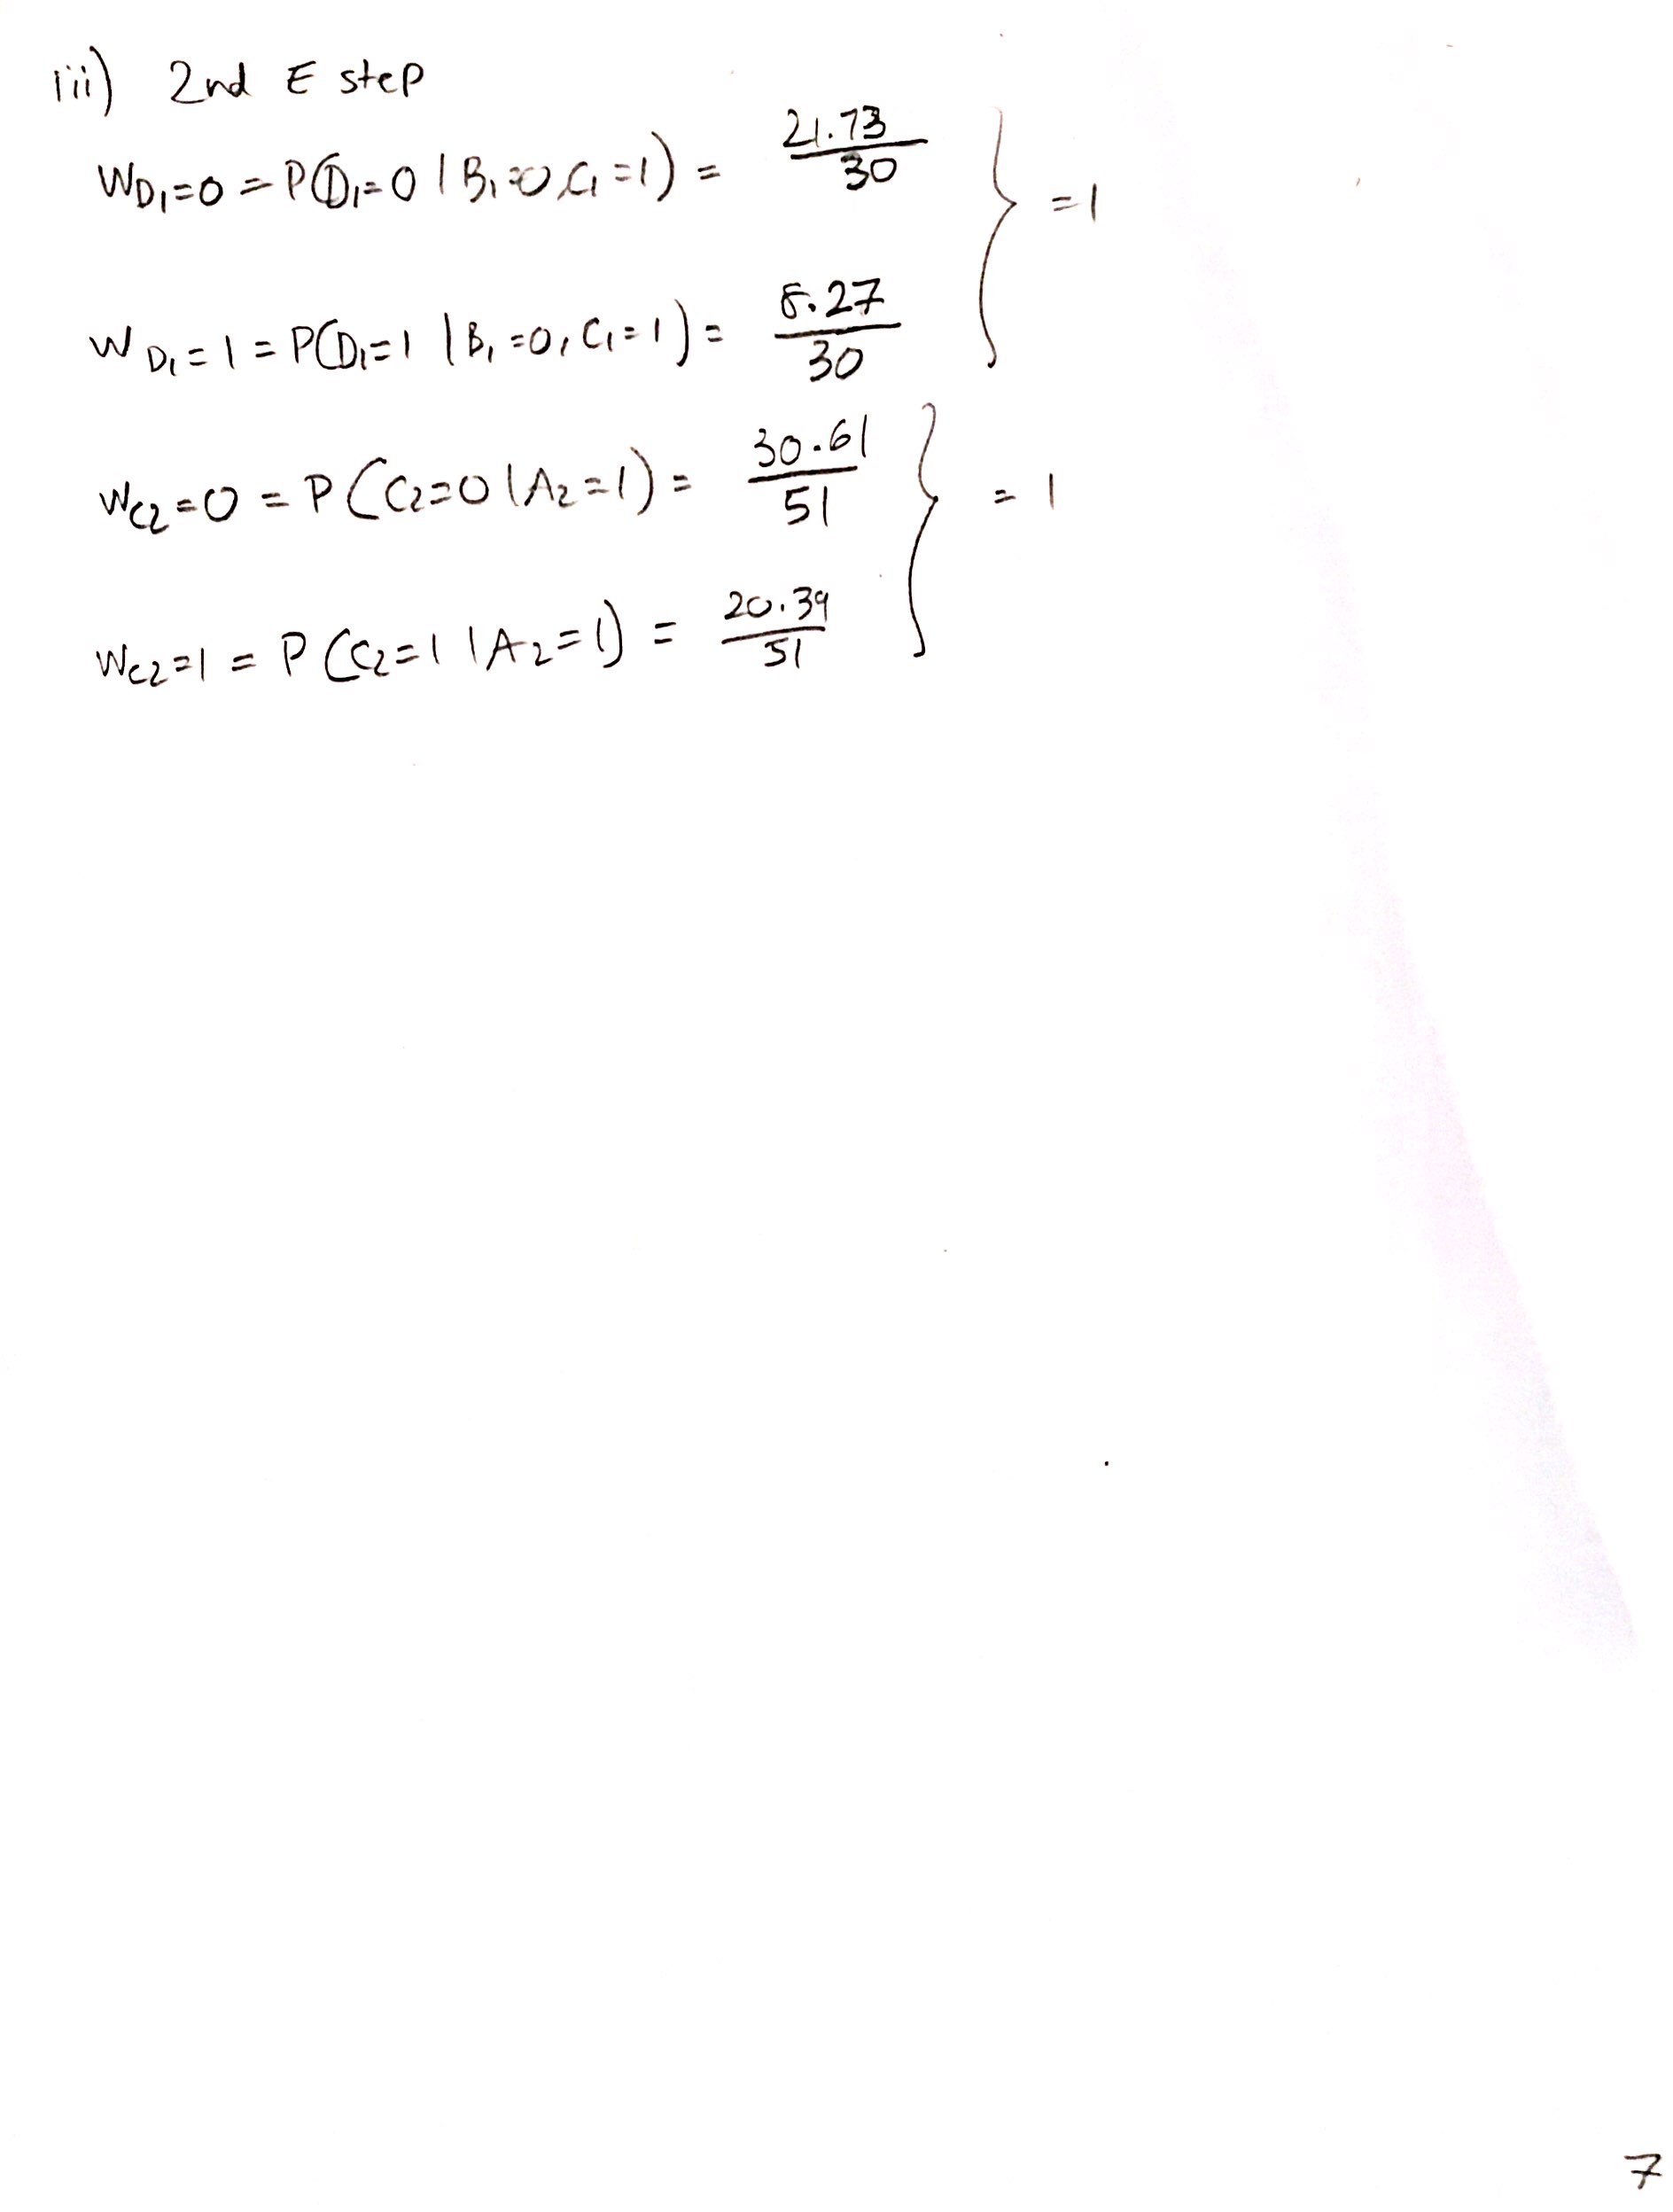 iii) 2nd E step
W_{D₁=0} = P(D₁=0 | B₁=0, C₁=1) = 21.73/30
} = 1
W_{D₁=1} = P(D₁=1 | B₁=0, C₁=1) = 8.27/30
W_{C₂=0} = P(C₂=0 | A₂=1) = 30.61/51
} = 1
W_{C₂=1} = P(C₂=1 | A₂=1) = 20.39/51
7